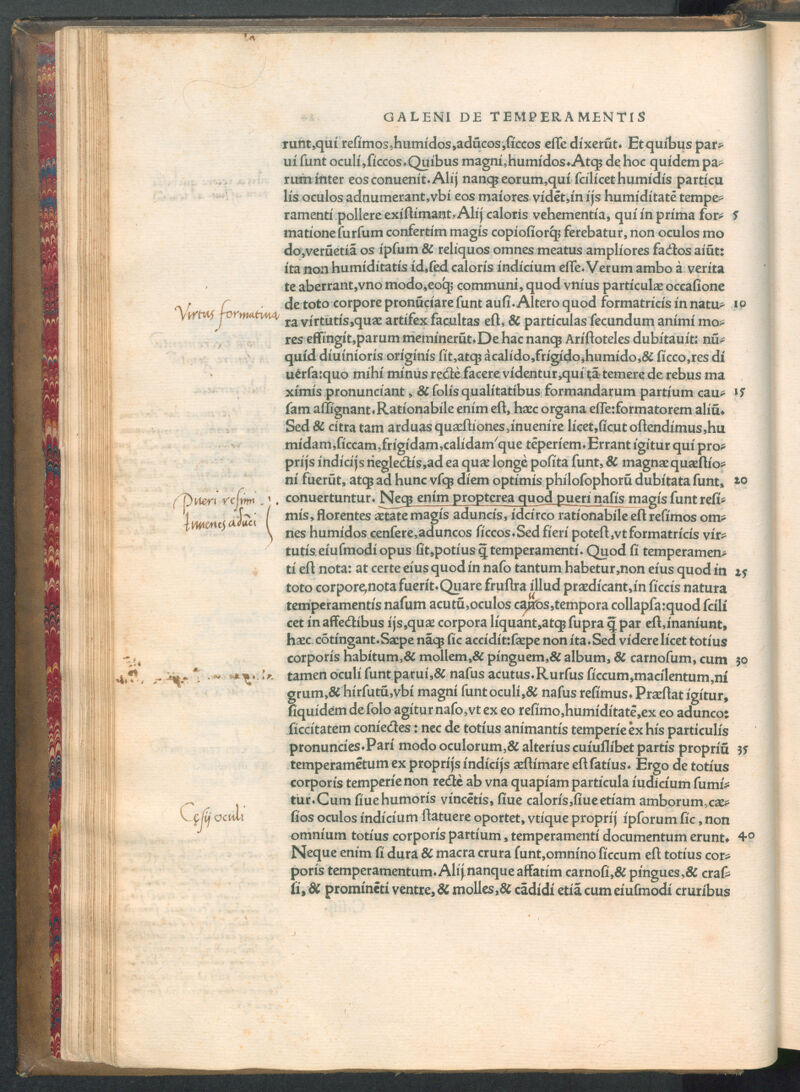 GALENI DE TEMPERAMENTIS
runt,qui resimos,humidos,adũcos,siccos esse dixerũt. Et quibus par-
ui sunt oculi,siccos.Quibus magni,humidos.Atq; de hoc quidem pa-
rum inter eos conuenit.Alij nanq; eorum,qui scilicet humidis particu
lis oculos adnumerant,vbi eos maiores vidẽt,in ijs humiditatẽ tempe-
ramenti pollere existimant.Alij caloris vehementia, qui in prima for- 5
matione sursum confertim magis copiosiorq; ferebatur, non oculos mo
do,verũetiã os ipsum & reliquos omnes meatus ampliores factos aiũt:
ita non humiditatis id,sed caloris indicium esse.Verum ambo à verita
te aberrant,vno modo,eoq; communi, quod vnius particulæ occasione
de toto corpore pronũciare sunt ausi.Altero quod formatricis in natu- 10
Virtus formatina
ra virtutis,quæ artifex facultas est, & particulas secundum animi mo-
res effingit,parum meminerũt.De hac nanq; Aristoteles dubitauit: nũ-
quid diuinioris originis sit,atq; à calido,frigido,humido,& sicco,res di
uersa:quo mihi minus rectè facere videntur,qui tã temere de rebus ma
ximis pronunciant, & solis qualitatibus formandarum partium cau- 15
sam assignant.Rationabile enim est, hæc organa esse:formatorem aliũ.
Sed & citra tam arduas quæstiones,inuenire licet,sicut ostendimus,hu
midam,siccam,frigidam,calidam que tẽperiem.Errant igitur qui pro-
prijs indicijs neglectis,ad ea quæ longè posita sunt, & magnæ quæstio-
ni fuerũt, atq; ad hunc vsq; diem optimis philosophorũ dubitata sunt, 20
conuertuntur. Neq; enim propterea quod pueri nasis magis sunt resi-
Pueri resimi
mis, florentes ætate magis aduncis, idcirco rationabile est resimos om-
Iuuenes adũci
nes humidos censere,aduncos siccos.Sed fieri potest,vt formatricis vir-
tutis eiusmodi opus sit,potius q̃ temperamenti. Quod si temperamen-
ti est nota: at certe eius quod in naso tantum habetur,non eius quod in 25
toto corpore,nota fuerit.Quare frustra illud prædicant,in siccis natura
temperamentis nasum acutũ,oculos,tempora collapsa:quod scili
cet in affectibus ijs,quæ corpora liquant,atq; supra q̃ par est,inaniunt,
hæc cõtingant.Sæpe nãq; sic accidit:sæpe non ita.Sed videre licet totius
corporis habitum,& mollem,& pinguem,& album, & carnosum, cum 30
tamen oculi sunt parui,& nasus acutus.Rursus siccum,macilentum,ni
grum,& hirsutũ,vbi magni sunt oculi,& nasus resimus. Præstat igitur,
siquidem de solo agitur naso,vt ex eo resimo,humiditatẽ,ex eo adunco:
siccitatem coniectes: nec de totius animantis temperie ex his particulis
pronuncies.Pari modo oculorum,& alterius cuiuslibet partis propriũ 35
temperamẽtum ex proprijs indicijs æstimare est satius. Ergo de totius
corporis temperie non rectè ab vna quapiam particula iudicium sumi-
tur.Cum siue humoris vincẽtis, siue caloris,siue etiam amborum,cæ-
Cęsij oculi
sios oculos indicium statuere oportet, vtique proprij ipsorum sic, non
omnium totius corporis partium, temperamenti documentum erunt. 40
Neque enim si dura & macra crura sunt,omnino siccum est totius cor-
poris temperamentum.Alij nanque affatim carnosi,& pingues,& cras-
si, & prominẽti ventre, & molles,& cãdidi etiã cum eiusmodi cruribus